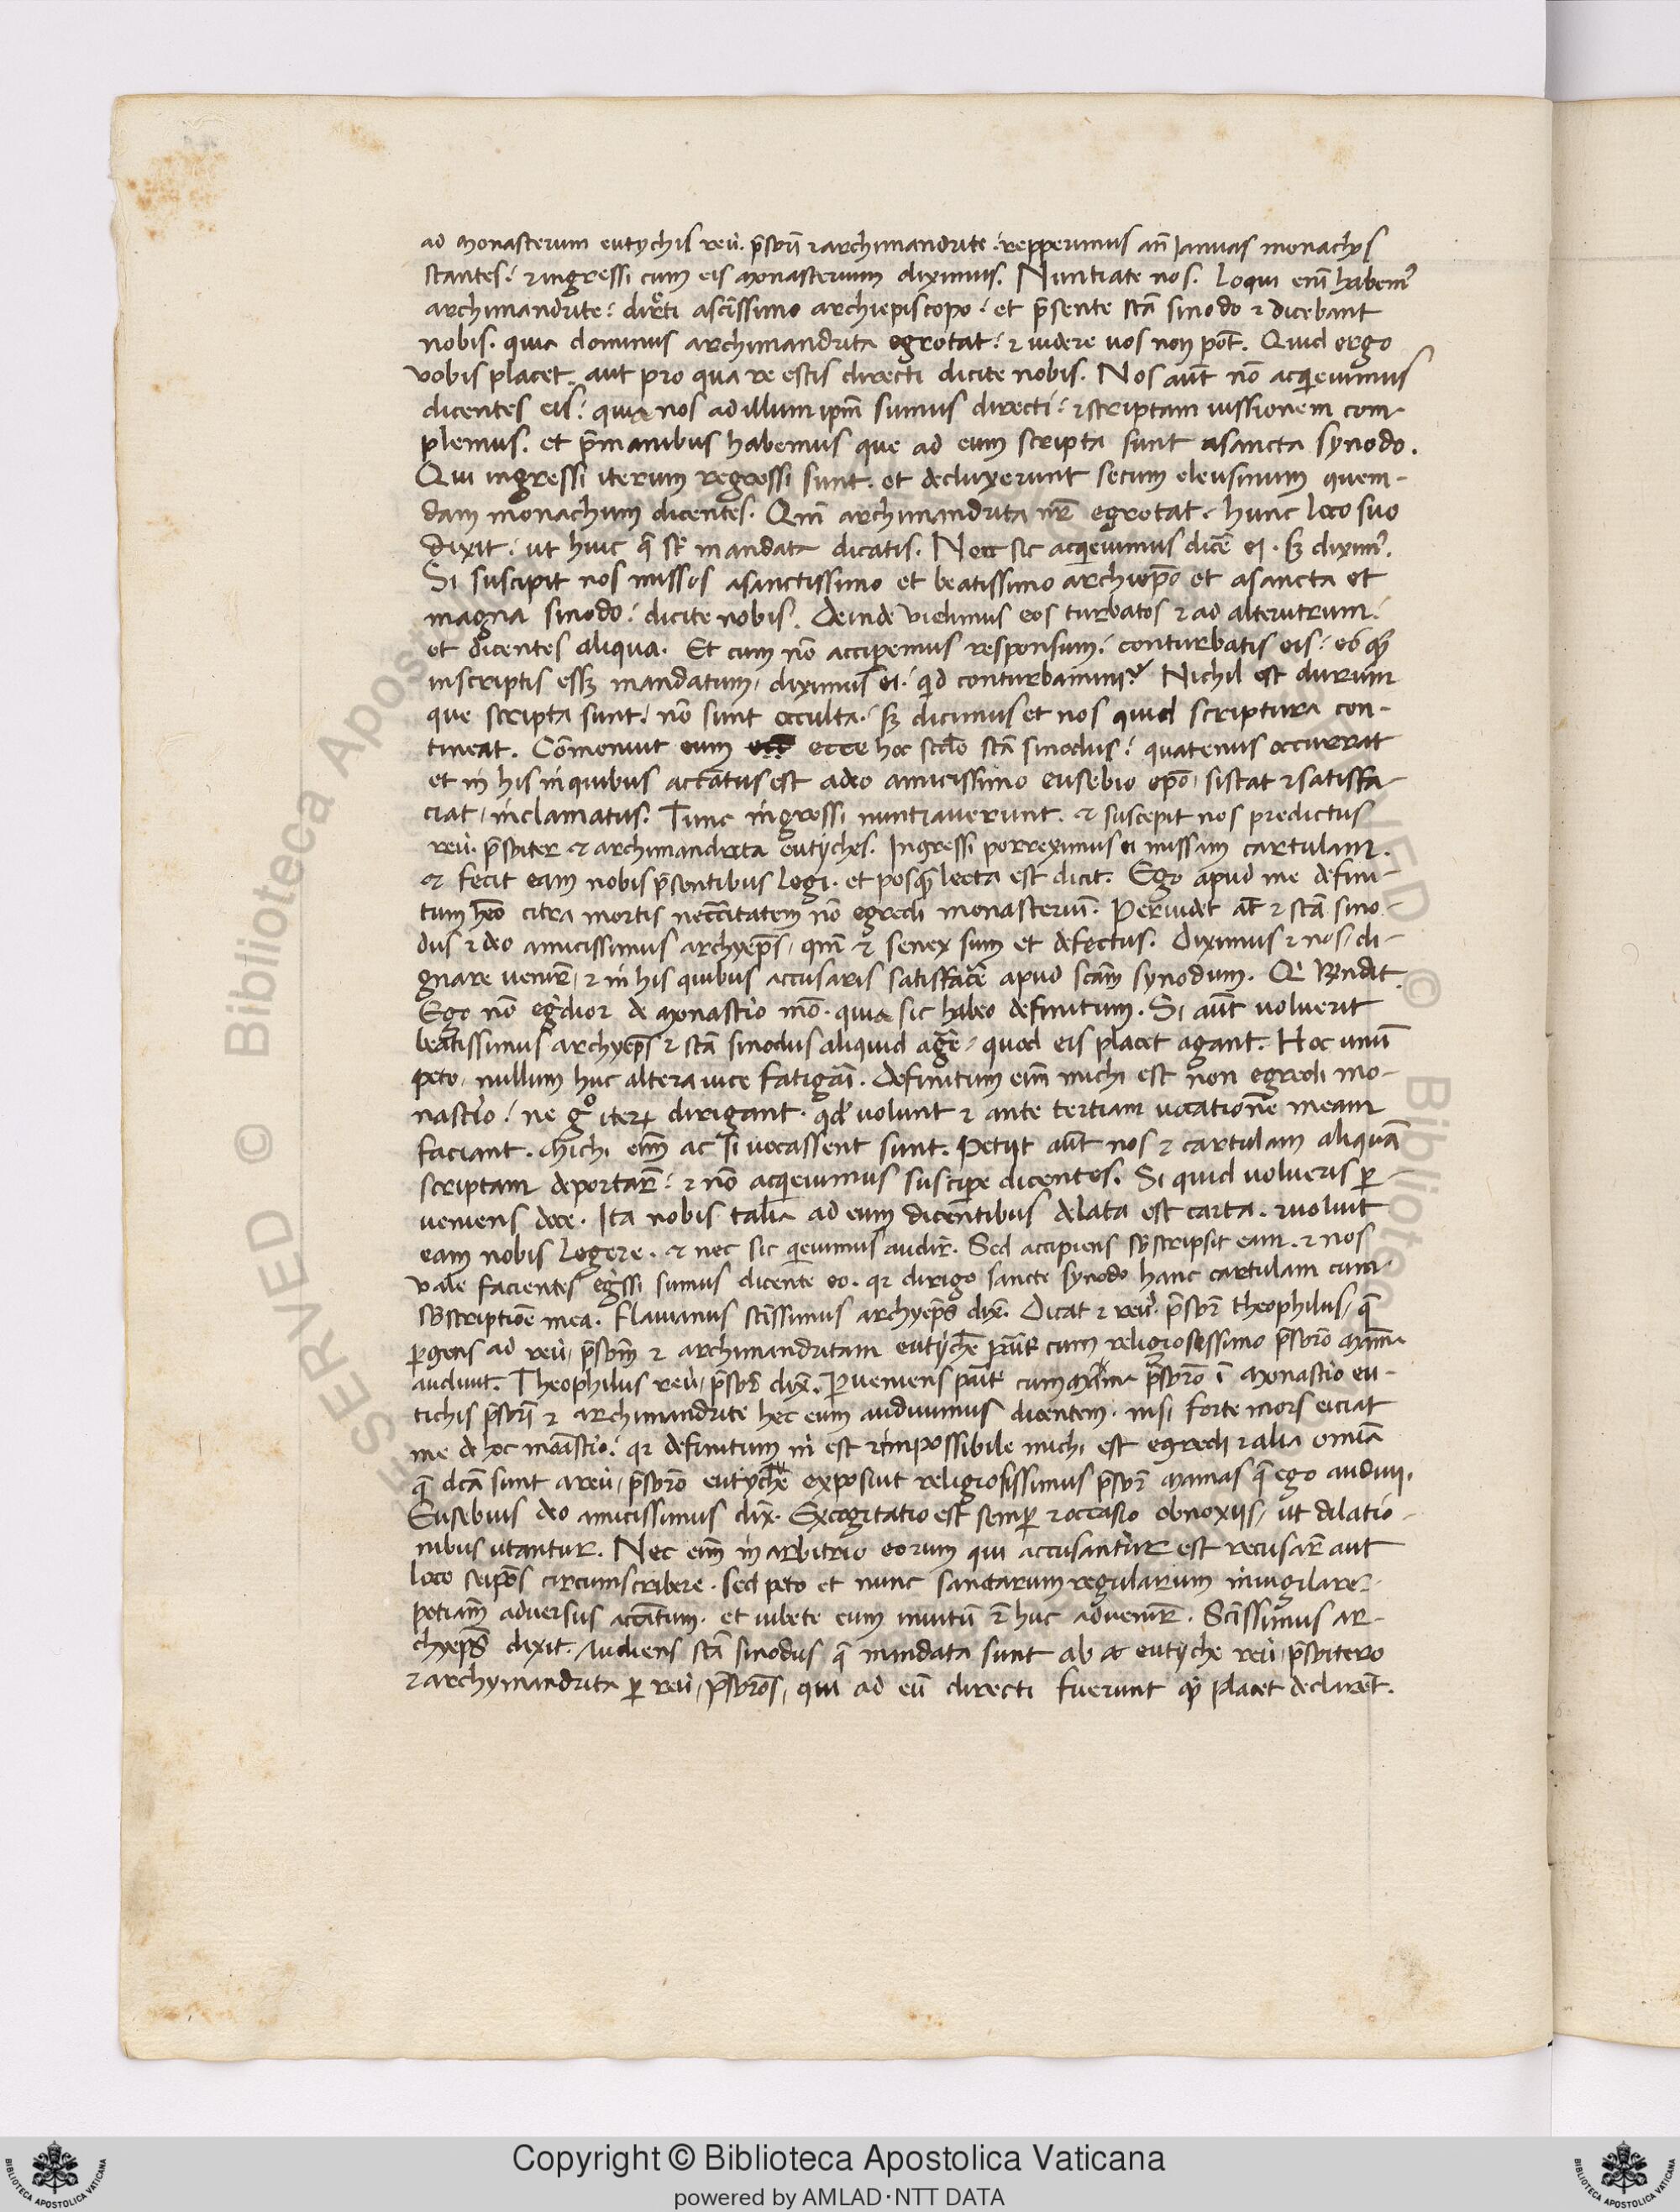 ad monasterium eutychis reũ. p̃sbr̃i ⁊ archimandrite. repperimus añ Januas monachos
stantes. ⁊ ingressi cum eis monasterium diximus. Nuntiate nos. loqui eni᷃ habem᾽
archimandrite. dir̃cti a sc̃issimo archiepiscopo. et p̃sente sc̃a sinodo ⁊ dicebant
nobis. quia dominus archimandrita egrotat. ⁊ uidere uos non põt. Quid ergo
vobis placet. aut pro qua re estis directi dicite nobis. Nos aũt nõ acquieuimus
dicentes eis. quia nos ad illum ip̃m sumus directi. ⁊ scriptam iussionem com-
plemus. et p̃ manibus habemus que ad eum scripta sunt a sancta synodo.
Qui ingressi iterum regressi sunt. et deduxerunt secum eleusinum quem-
dam monachum dicentes. Qm̃ archimandrita nr̃ egrotat. hunc loco suo
dixit. ut huic q̃ st̃ mandata dicatis. Nec sic acquieuimus dicẽ ei. sꝫ dixim᾽.
Si suscipit nos missos a sanctissimo et beatissimo archiep̃o et a sancta et
magna sinodo. dicite nobis. Deinde vidimus eos turbatos ⁊ ad alterutrum.
et dicentes aliqua. Et cum nõ acciperemus responsum. conturbatis eis. eo qͥ
in scriptis essꝫ mandatum, diximus ei. qd conturbamini? Nichil est durum
que scripta sunt. nõ sunt occulta. sꝫ dicimus et nos quid scriptura con-
tineat. Cõmonuit eum ecce hoc scd̃o sc̃a sinodus. quatenus occurrat
et in his in quibus acc̃atus est a deo amicissimo eusebio ep̃o, sistat ⁊ satisfa-
ciat, inclamatus. Tunc ingressi nuntiauerunt. ⁊ suscepit nos predictus
reũ. p̃sbiter ⁊ archimandrita eutyches. Ingressi porreximus ei missam cartulam.
⁊ fecit eam nobis p̃sentibus legi. et posq̃ lecta est dicit. Ego apud me defini-
tum hẽo citra mortis necc̃itatem nõ egredi monasteriũ. Peruidet aũt ⁊ sc̃a sino-
dus ⁊ deo amicissimus archyep̃s, qm̃ ⁊ senex sum et defectus. Diximus ⁊ nos, di-
gnare uenir̃, ⁊ in his quibus accusaris satisfacẽ apud scãm synodum. Q̃ rñdit
Ego nõ egr̃dior de monast̃io mõ. quia sic habeo definitum. Si aũt voluerit
beatissimus archyep̃s ⁊ sc̃a sinodus aliquid agẽ, quod eis placet agant. Hoc unũ
peto, nullum huc altera uice fatigãi. Definitum eni᷃ michi est non egredi mo-
nast̃io. ne gº iteꝝ dirigant. qd̃ volunt ⁊ ante tertiam uocationẽ meam
faciant. Michi eni᷃ ac si uocassent sunt. Petijt aũt nos ⁊ cartulam aliquã
scriptam deportar̃. ⁊ nõ acquieuimus suscipe dicentes. Si quid volueris ꝑ
ueniens doce. Ita nobis talia ad eum dicentibus delata est carta. ⁊ voluit
eam nobis legere. ⁊ nec sic quieuimus audir̃. Sed accipiens sb̃scripsit eam. ⁊ nos
vale facientes egr̃ssi sumus dicente eo. qr dirigo sancte synodo hanc cartulam cum
sb̃scriptiõe mea. Flauianus sc̃issimus archyep̃s dix̃. Dicat ⁊ reũ. p̃sbr̃ theophilus, q̃
ꝑgens ad reũ, p̃sbr̃m ⁊ archimandritam eutychẽ p̃rit̃ cum religiosissimo p̃sbr̃o Mama
audiuit. Theophilus reũ, p̃sbr̃ dix̃. Pueniens parit̃ cum Mama p̃sbr̃o ĩ monast̃io eu-
tichis p̃sbr̃i ⁊ archimandrite hec eum audiuimus dicentem. nisi forte mors eiciat
me de hoc monast̃io. qr definitum m̃ est ⁊ impossibile michi est egredi ⁊ alia om̃ia
q̃ dc̃a sunt a reũ, p̃sbr̃o eutychẽ exposuit religiosissimus p̃sbr̃ Mamas q̃ ego audiui.
Eusebius deo amicissimus dix̃. Excogitatio est semꝑ ⁊ occasio obnoxijs, ut dilatio-
nibus utantur. Nec eni᷃ in arbitrio eorum qui accusantur est recusar̃ aut
loco seip̃os circumscribere. sed peto et nunc sanctarum regularum inuigilare
potiam̃ adversus acc̃atum. et iubete eum inuitũ ⁊ huc aduenir̃. Sc̃issimus ar-
chyep̃s dixit. Audiens sc̃a sinodus q̃ mandata sunt ab eutyche reũ, p̃sbitero
⁊ archymandrita ꝑ reũ, p̃sbr̃os, qui ad eũ directi fuerunt qͥ placet declaret.